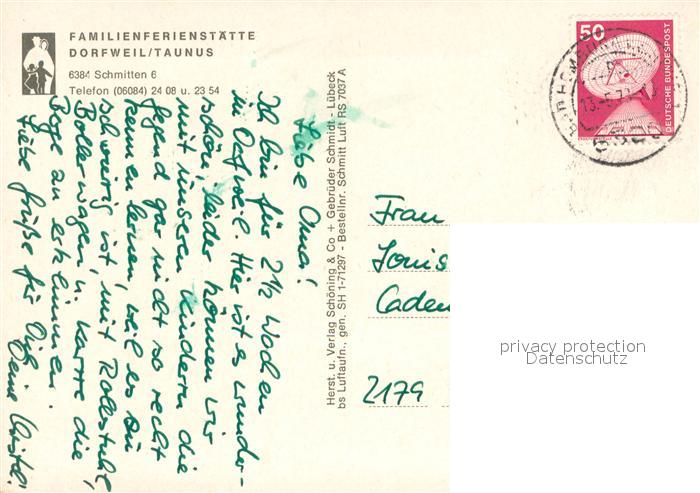 FAMILIENFERIENSTÄTTE
DORFWEIL/TAUNUS
6384 Schmitten 6
Telefon (06084) 24 08 u. 23 54
50
DEUTSCHE BUNDESPOST
Liebe Oma!
Ich bin für 2½ Wochen
in Dorfweil. Hier ist es wunder-
schön, leider können wir
mit unseren Kindern die
Gegend gar nicht so recht
kennen lernen, weil es zu
schwierig ist, mit Rollstuhl,
Bollerwagen u. Karre die
Berge zu erklimmen.
Liebe Grüße für Dich
Deine
Herst. u. Verlag Schöning & Co + Gebrüder Schmidt - Lübeck
bs Luftaufn., gen. SH 1-71297 - Bestellnr. Schmitt Luft RS 7037 A
Frau
Louis
Caden
2179
privacy protection
Datenschutz